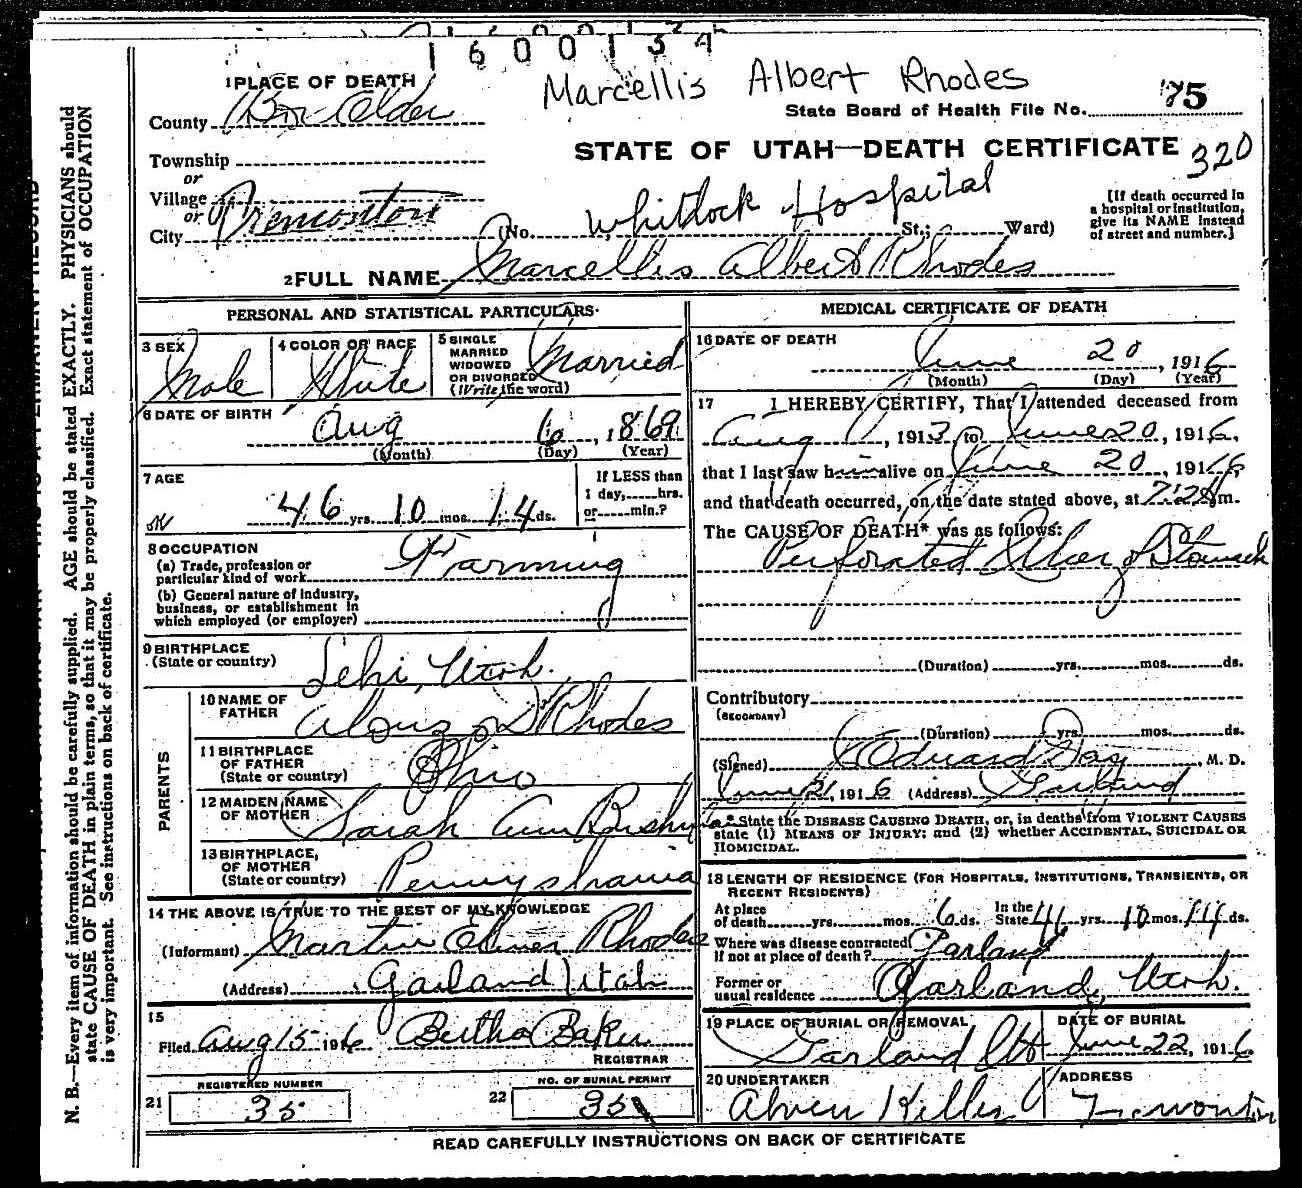 1600134
Marcellis Albert Rhodes
1 PLACE OF DEATH
State Board of Health File No. 75
County Box Elder
STATE OF UTAH—DEATH CERTIFICATE 320
Township
or
Village
or
City Tremonton (No. Whitlock Hospital St.; Ward)
[If death occurred in a hospital or institution, give its NAME instead of street and number.]
2 FULL NAME Marcellis Albert Rhodes
PERSONAL AND STATISTICAL PARTICULARS
3 SEX Male
4 COLOR OR RACE White
5 SINGLE MARRIED WIDOWED OR DIVORCED (Write the word) Married
6 DATE OF BIRTH
Aug 6, 1869
(Month) (Day) (Year)
7 AGE
46 yrs. 10 mos. 14 ds.
If LESS than 1 day, hrs. or min.?
8 OCCUPATION
(a) Trade, profession or particular kind of work Farming
(b) General nature of industry, business, or establishment in which employed (or employer)
9 BIRTHPLACE
(State or country) Lehi, Utah.
PARENTS
10 NAME OF FATHER Alonzo D Rhodes
11 BIRTHPLACE OF FATHER (State or country) Ohio
12 MAIDEN NAME OF MOTHER Sarah Ann
13 BIRTHPLACE, OF MOTHER (State or country) Pennyslvania
14 THE ABOVE IS TRUE TO THE BEST OF MY KNOWLEDGE
(Informant) Martin Elmer Rhodes
(Address) Garland Utah
15
Filed Aug 15 1916 Bertha Baker
REGISTRAR
21 REGISTERED NUMBER 35
22 NO. OF BURIAL PERMIT 35
MEDICAL CERTIFICATE OF DEATH
16 DATE OF DEATH
June 20, 1916
(Month) (Day) (Year)
17 I HEREBY CERTIFY, That I attended deceased from
Aug 1, 1913 to June 20, 1916,
that I last saw him alive on June 20, 1916
and that death occurred, on the date stated above, at m.
The CAUSE OF DEATH* was as follows:
Perforated Ulcer of Stomach
(Duration) yrs. mos. ds.
Contributory
(SECONDARY)
(Duration) yrs. mos. ds.
(Signed) Edward Day, M. D.
June 21, 1916 (Address) Garland
*State the DISEASE CAUSING DEATH, or, in deaths from VIOLENT CAUSES
state (1) MEANS OF INJURY; and (2) whether ACCIDENTAL, SUICIDAL OR
HOMICIDAL.
18 LENGTH OF RESIDENCE (FOR HOSPITALS, INSTITUTIONS, TRANSIENTS, OR
RECENT RESIDENTS)
At place of death yrs. mos. 6 ds. In the State 46 yrs. 10 mos. 14 ds.
Where was disease contracted If not at place of death? Garland
Former or usual residence Garland, Utah.
19 PLACE OF BURIAL OR REMOVAL Garland Ut
DATE OF BURIAL June 22, 1916
20 UNDERTAKER
ADDRESS Tremonton
READ CAREFULLY INSTRUCTIONS ON BACK OF CERTIFICATE
N. B.—Every item of information should be carefully supplied. AGE should be stated EXACTLY. PHYSICIANS should
state CAUSE OF DEATH in plain terms, so that it may be properly classified. Exact statement of OCCUPATION
is very important. See instructions on back of certificate.